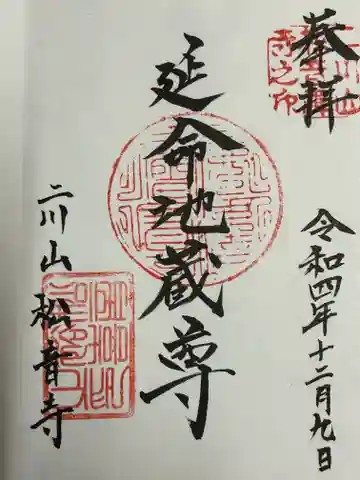 奉拝
令和四年十二月九日
延命地蔵尊
二川山松音寺